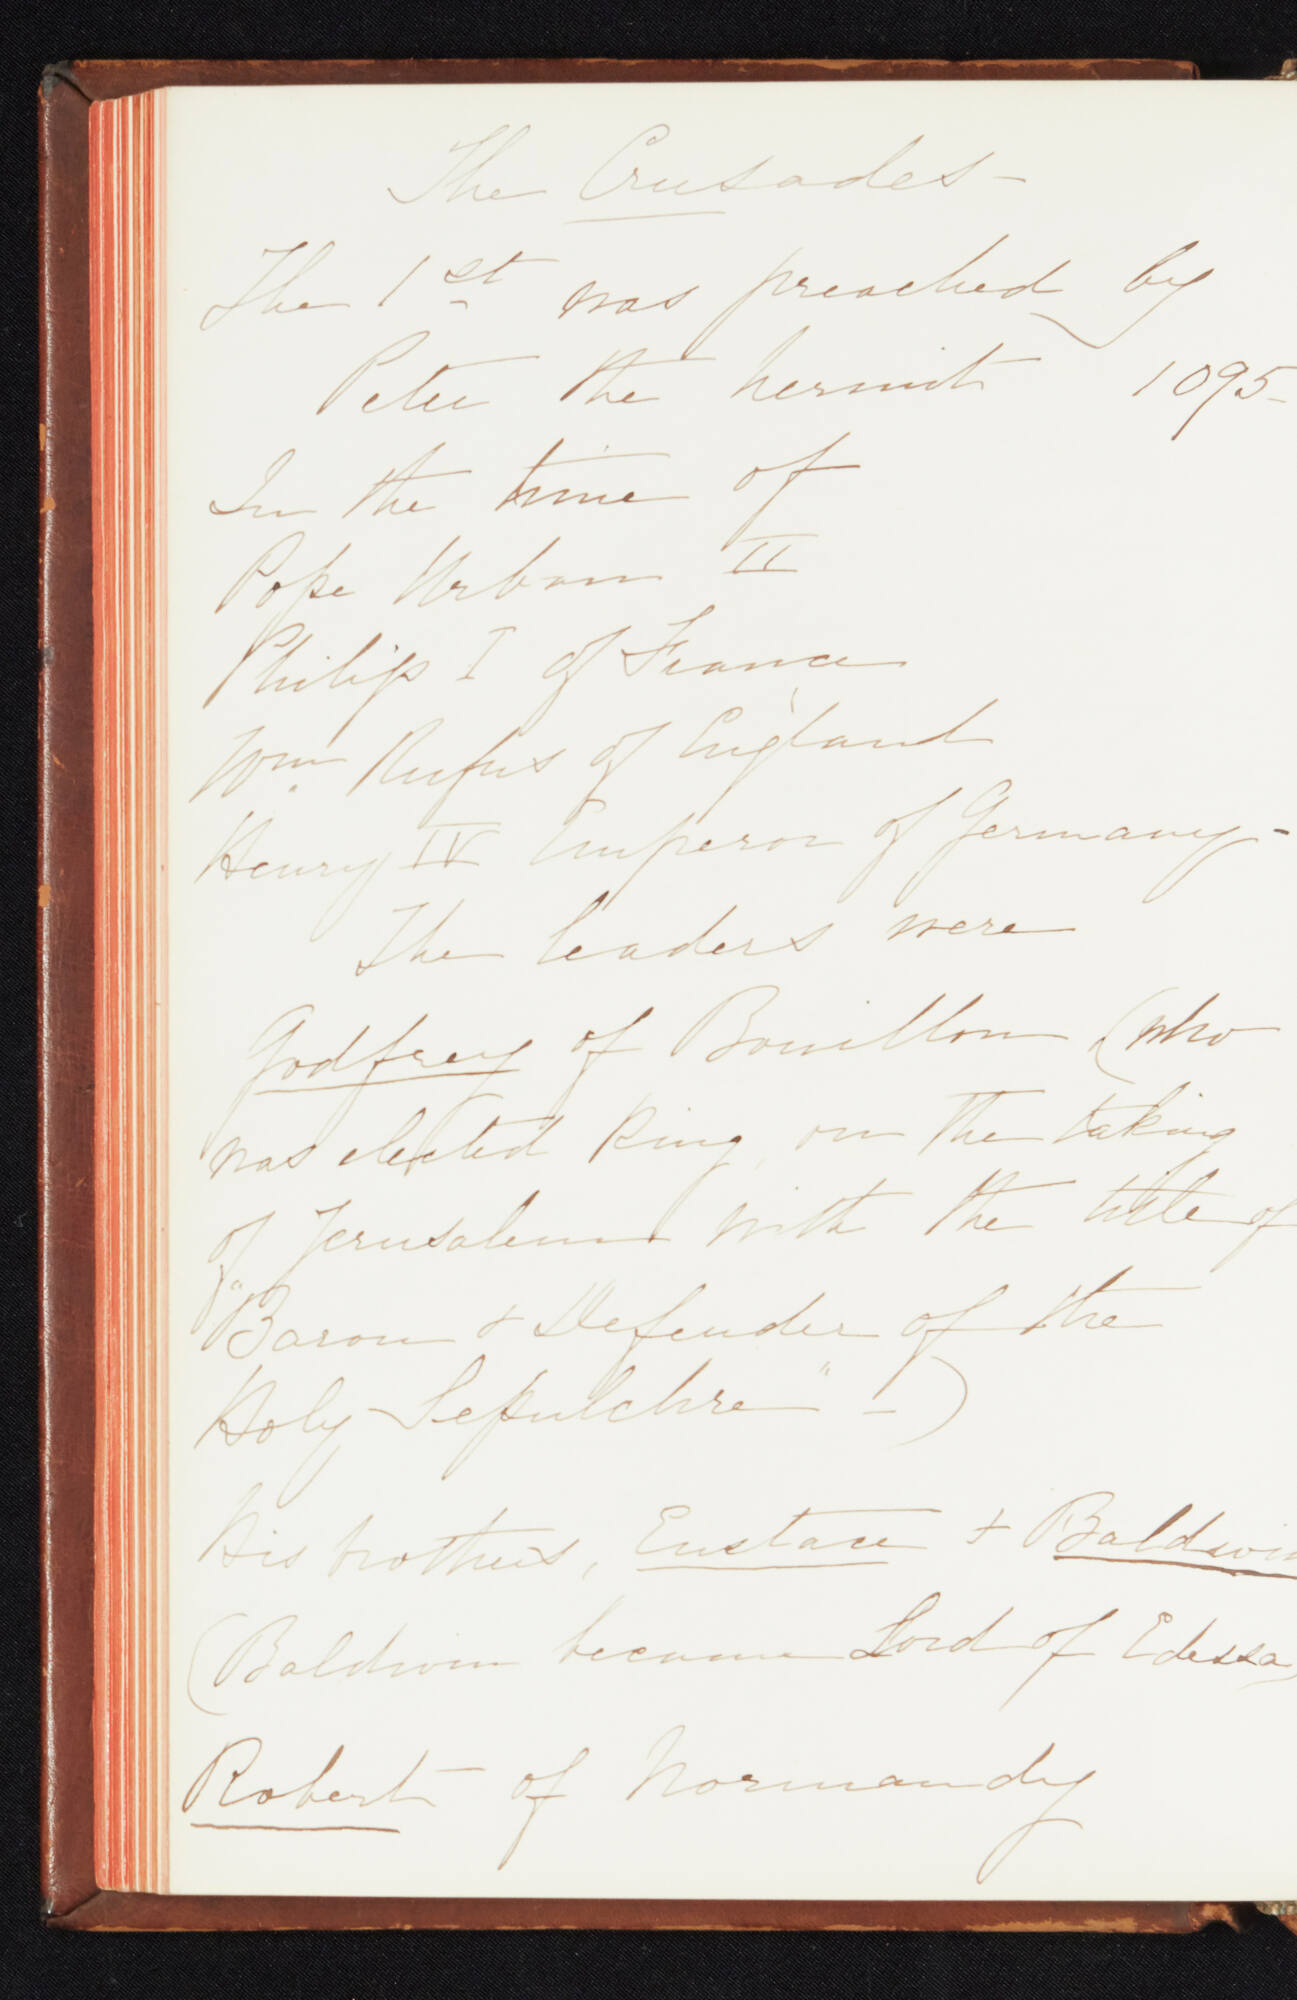 The Crusades -
The 1st was preached by
Peter the hermit 1095-
In the time of
Pope Urban II
Philip I of France
Wm Rufus of England
Henry IV Emperor of Germany -
The leaders were
Godfrey of Bouillon (who
was elected King, on the taking
of Jerusalem with the title of
"Baron & Defender of the
Holy Sepulchre" - )
His brothers, Eustace & Baldwin
(Baldwin became Lord of Edessa)
Robert of Normandy